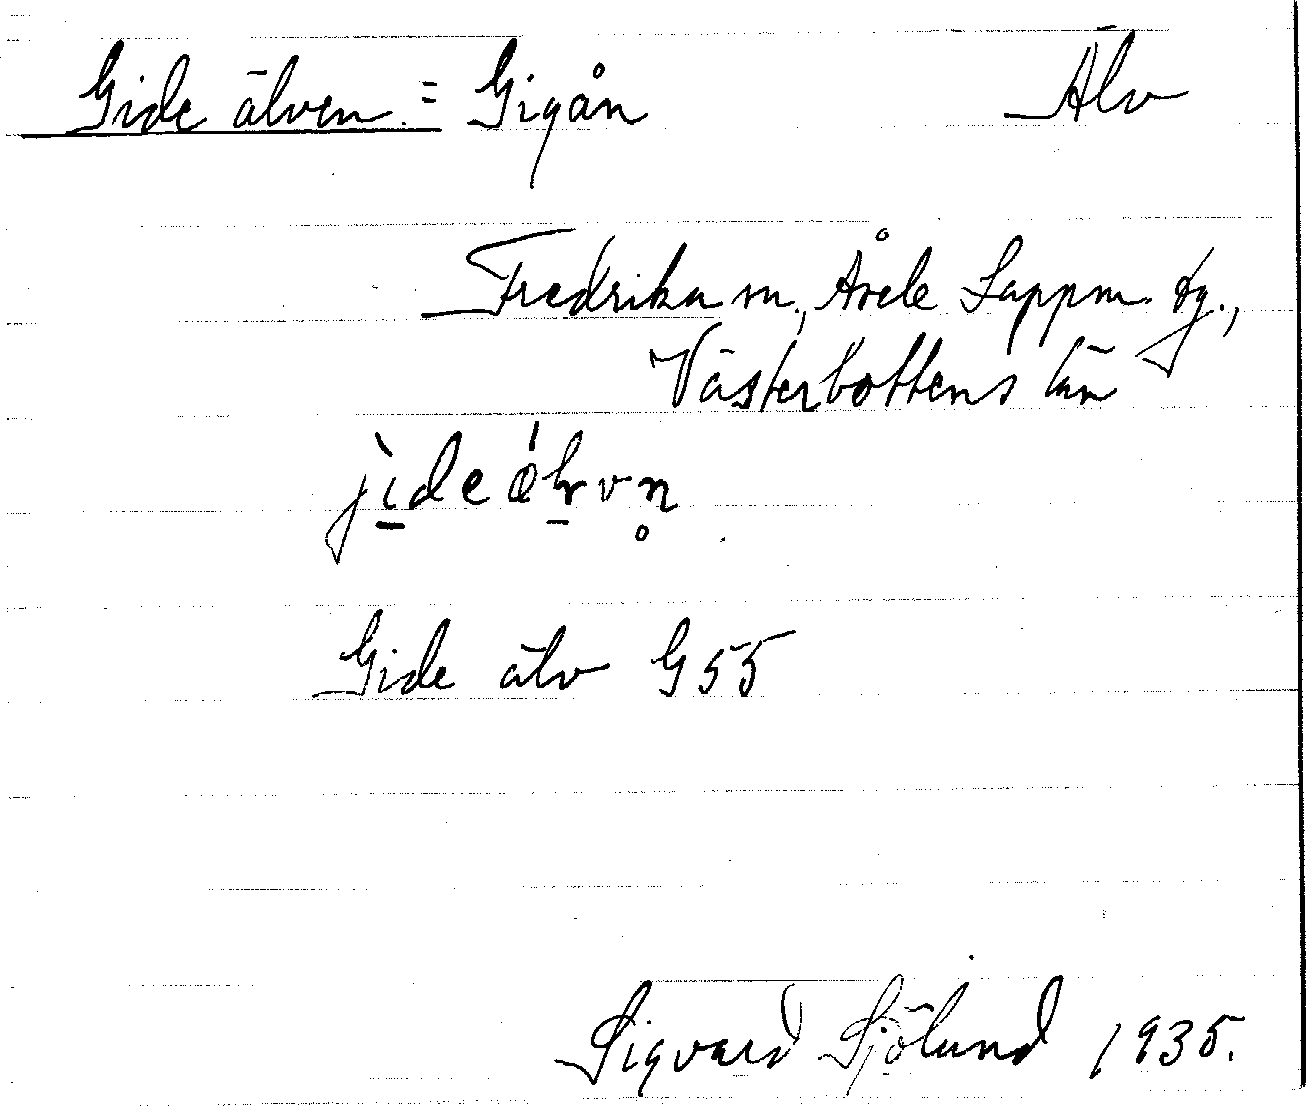 Gide älven = Gigån Älv
Fredrika m., Åsele Lappm. tg.,
Västerbottens län
Gide älv G55
Sigvard Sjölund 1935.